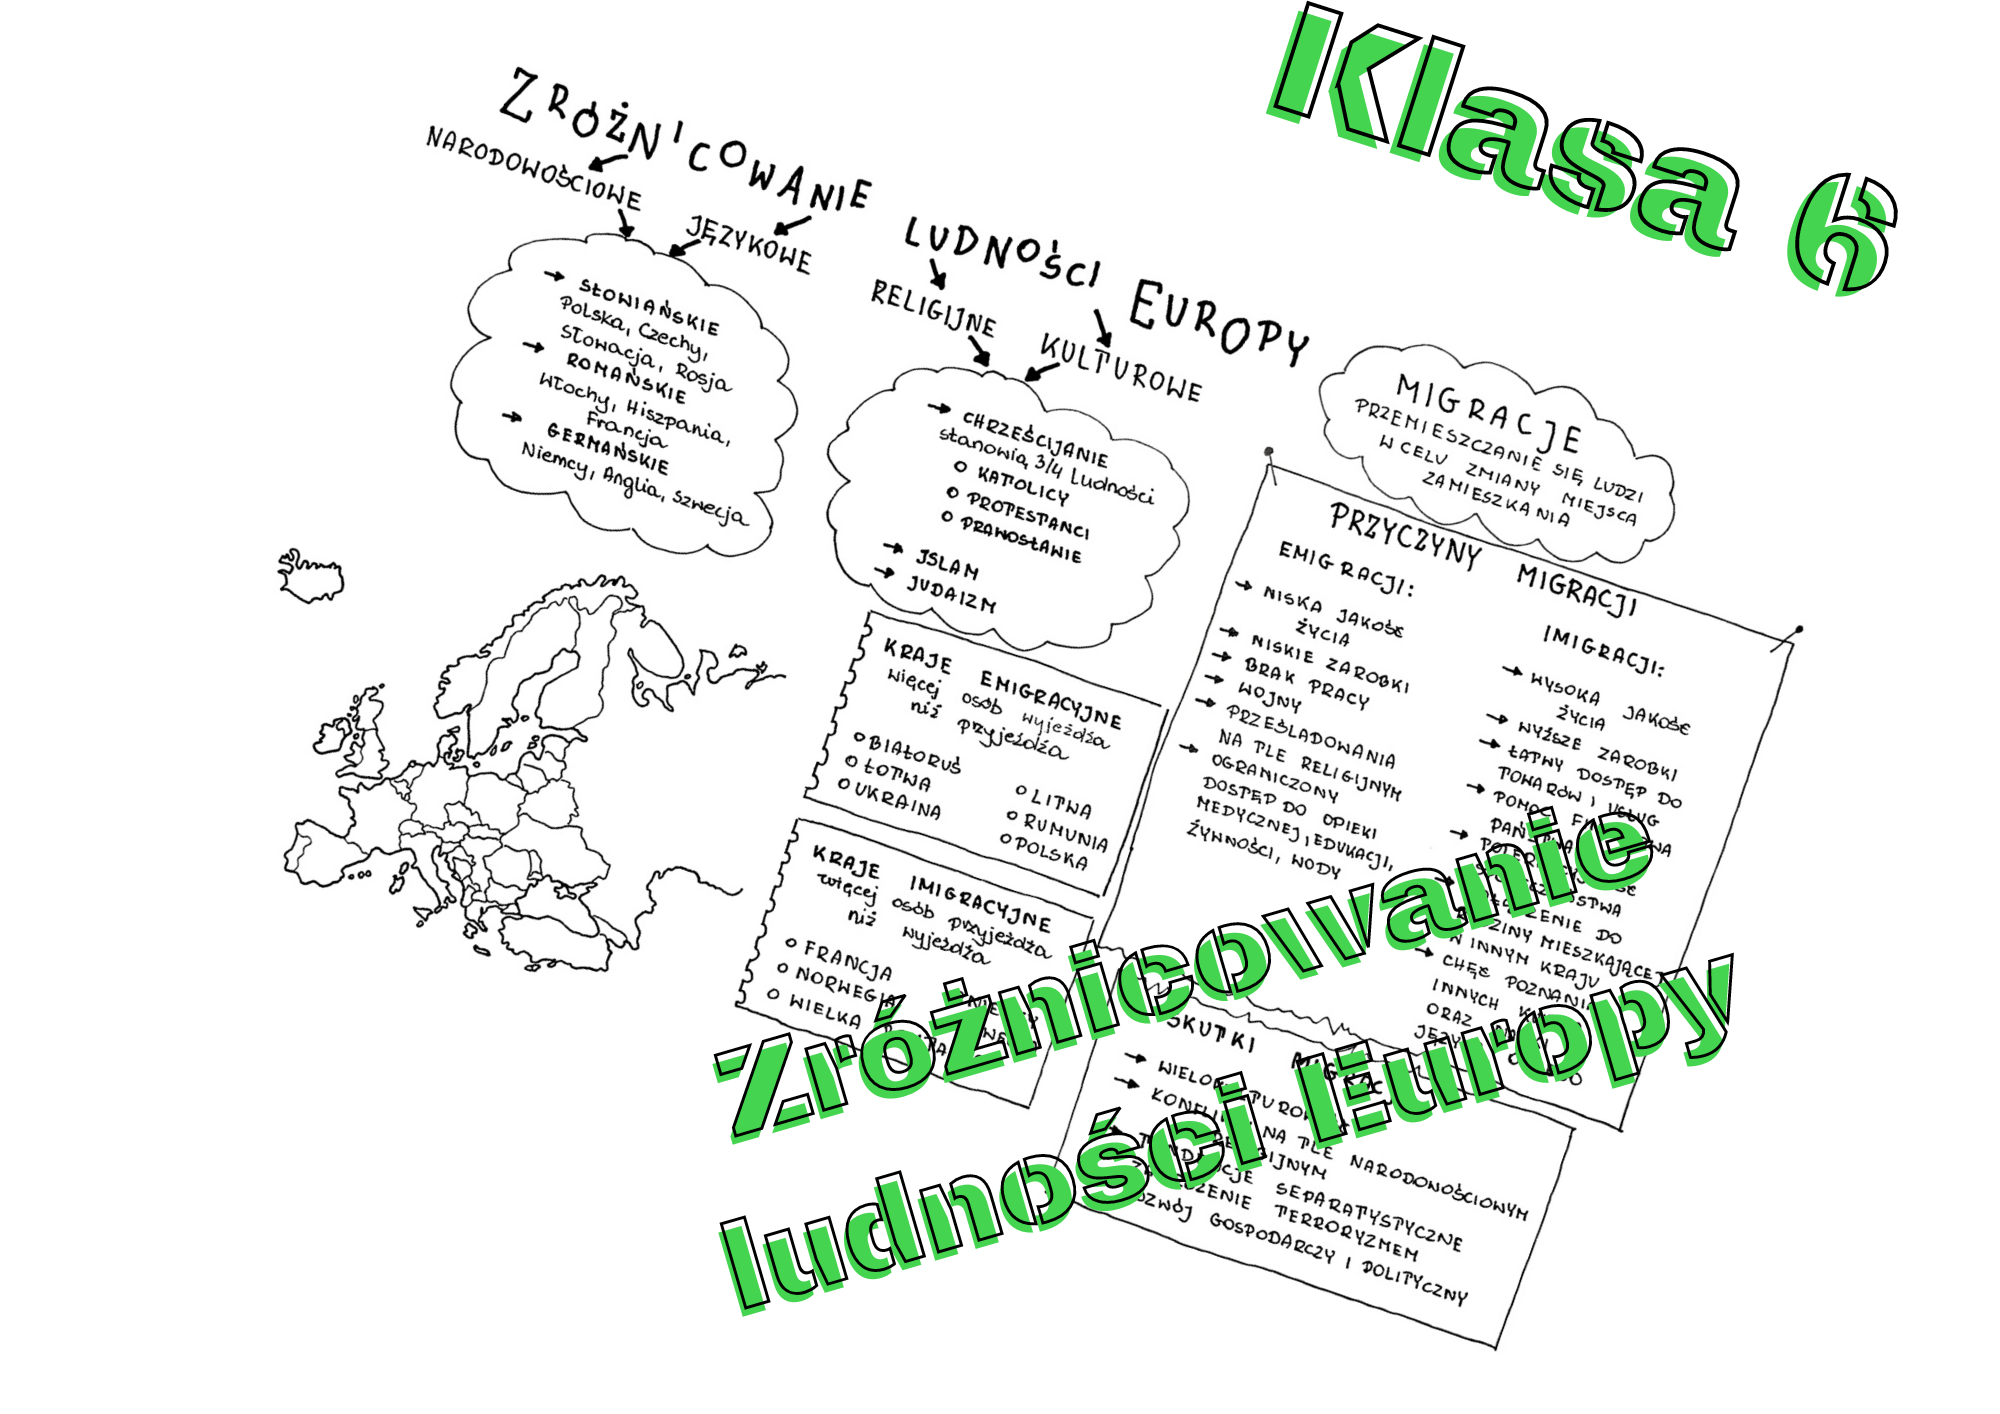 Klasa 6
ZRÓŻNICOWANIE LUDNOŚCI EUROPY
NARODOWOŚCIOWE
JĘZYKOWE
RELIGIJNE
KULTUROWE
SŁOWIAŃSKIE
Polska, Czechy,
Słowacja, Rosja
ROMAŃSKIE
Włochy, Hiszpania,
Francja
GERMAŃSKIE
Niemcy, Anglia, Szwecja
CHRZEŚCIJANIE
stanowią 3/4 Ludności
KATOLICY
PROTESTANCI
PRAWOSŁAWIE
ISLAM
JUDAIZM
MIGRACJE
PRZEMIESZCZANIE SIĘ LUDZI
W CELU ZMIANY MIEJSCA
ZAMIESZKANIA
KRAJE EMIGRACYJNE
więcej osób wyjeżdża
niż przyjeżdża
BIAŁORUŚ
ŁOTWA
UKRAINA
LITWA
RUMUNIA
POLSKA
KRAJE IMIGRACYJNE
więcej osób przyjeżdża
niż wyjeżdża
FRANCJA
NORWEGIA
WIELKA
PRZYCZYNY MIGRACJI
EMIGRACJI:
NISKA JAKOŚĆ
ŻYCIA
NISKIE ZAROBKI
BRAK PRACY
WOJNY
PRZEŚLADOWANIA
NA TLE RELIGIJNYM
OGRANICZONY
DOSTĘP DO OPIEKI
MEDYCZNEJ, EDUKACJI,
ŻYWNOŚCI, WODY
IMIGRACJI:
WYSOKA JAKOŚĆ
ŻYCIA
WYŻSZE ZAROBKI
ŁATWY DOSTĘP DO
TOWARÓW I USŁUG
POMOC
DO
MIESZKAJĄCEJ
W INNYM KRAJU
CHĘĆ POZNANIA
INNYCH
ORAZ
SKUTKI
NA TLE NARODOWOŚCIOWYM
SEPARATYSTYCZNE
TERRORYZMEM
ROZWÓJ GOSPODARCZY I POLITYCZNY
Zróżnicowanie
ludności Europy